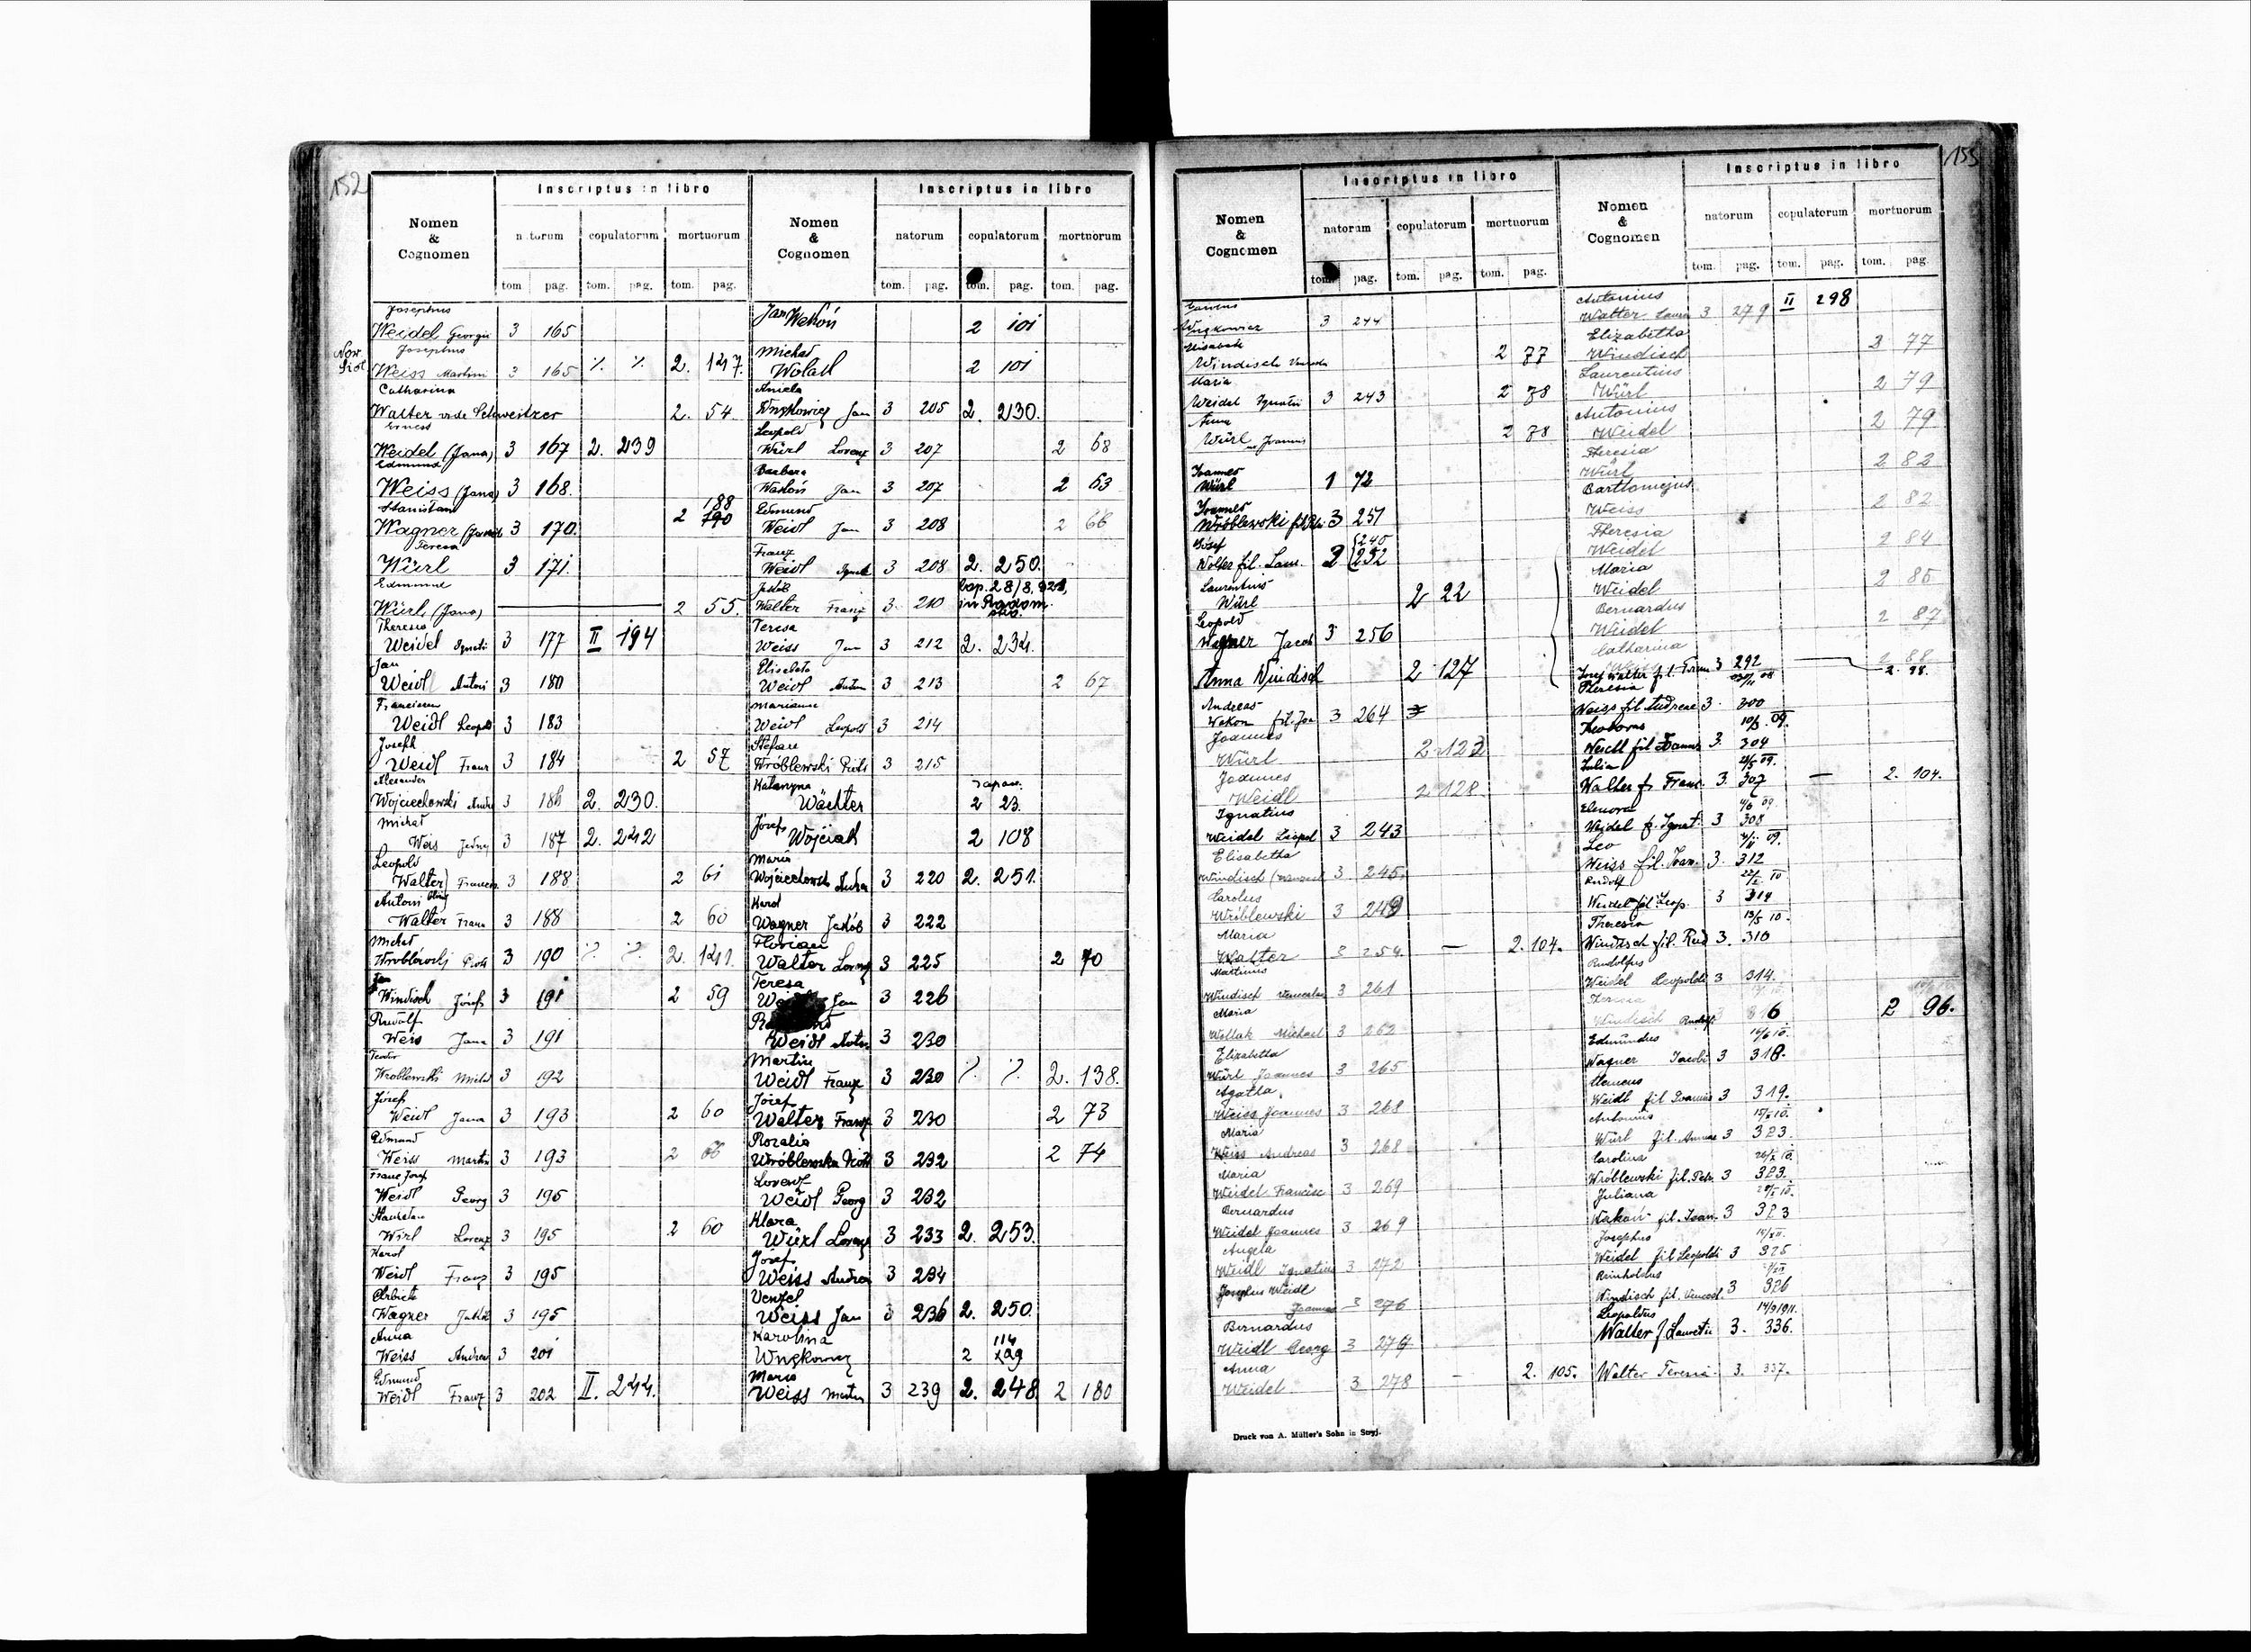 152
Inscriptus in libro
Nomen & Cognomen
natorum copulatorum mortuorum
tom. pag. tom. pag. tom. pag.
Josephus
Weidel Georgii 3 165
Josephus
Weiss Martini 3 165 % % 2. 147.
Catharina
Walter vrde Schweitzer 2. 54.
Weidel (Jana) 3 167 2. 239
Edmund
Weiss (Jana) 3 168.
Stanislaus
188
Wagner 3 170. 2 190
Teresa
Würl 3 171.
Edmund
Würl (Jana) 2 55.
Theresia
Weidel Ignatii 3 177 II 194
Jan
Weidl Antoni 3 180
Weidl Leopold 3 183
Joseph
Weidl Franz 3 184 2 57
Alexander
Wojciechowski Andr 3 186 2. 230.
Michał
Weis 3 187 2. 242
Leopold
Walter 3 188 2 61
Antoni
Walter Franz 3 188 2 60
Michał
Wróblewski Piotr 3 190 % % 2. 141.
Jan
Windisch Józef 3 191 2 59
Rudolf
Weis Jana 3 191
Teodor
Wroblewski Michał 3 192
Józef
Weidl Jana 3 193 2 60
Edmund
Weiss Martin 3 193 2 66
Franz Josef
Weidl Georg 3 195
Wirl Lorenz 3 195 2 60
Karol
Weidl Franz 3 195
Wagner Jakób 3 195
Anna
Weiss Andrea 3 201
Edmund
Weidl Franz 3 202 II. 244.
Inscriptus in libro
Nomen & Cognomen
natorum copulatorum mortuorum
tom. pag. tom. pag. tom. pag.
Jan Wakoń 2 101
Michał
Wolak 2 101
Aniela
Wnękowicz Jan 3 205 2. 230.
Leopold
Würl Lorenz 3 207 2 68
Barbara
Wakoń Jan 3 207 2 63
Edmund
Weidl Jan 3 208 2 66
Franz
Weidl Ignatz 3 208 2. 250.
Jakób
Walter Franz 3 210
Teresa
Weiss Jan 3 212 2. 234.
Elisabeta
Weidl Anton 3 213 2 67
Marianna
Weidl Leopold 3 214
Stefan
Wróblewski Piotr 3 215
Katarzyna
Wächter 2 23.
Józef
Wojciak 2 108
Maria
Wojciechowsk Andrea 3 220 2. 251.
Karol
Wagner Jakób 3 222
Florian
Walter Lorenz 3 225 2 70
Teresa
Jan 3 226
Weidl Anton 3 230
Martin
Weidl Franz 3 230 % % 2. 138.
Józef
Walter Franz 3 230 2 73
Rozalia
Wróblewska Piotr 3 232 2 74
Lorenz
Weidl Georg 3 232
Klara
Würl Lorenz 3 233 2. 253.
Józef
Weiss Andrea 3 234
Venzel
Weiss Jan 3 236 2. 250.
Karolina
114
Wnękowicz 2
Maria
Weiss Martin 3 239 2. 248 2 180
155
Inscriptus in libro
Nomen & Cognomen
natorum copulatorum mortuorum
tom. pag. tom. pag. tom. pag.
Wnękowicz 3 244
Windisch 2 77
Maria
Weidel Ignatii 3 243 2 78
Anna
Würl Joannis 2 78
Joannes
Würl 1 72
Joannes
Wróblewski 3 251
Józef 240
Wolter fil. Laur. 2 252
Laurentius
Würl 2 22
Leopold
Wagner Jacob 3 256
Anna Windisch 2 127
Andreas
Wakon fil. Jan 3 264
Joannes
Würl 2 123
Joannes
Weidl 2 128.
Ignatius
Weidel Leopol 3 243
Elisabetha
Windisch 3 245.
Carolus
Wróblewski 3 249
Maria
Walter 3 254. — 2. 104.
Martinus
Windisch 3 261
Maria
Wollak Michael 3 262
Elizabetha
Würl Joannes 3 265
Agatha
Weiss Joannes 3 268
Maria
Weiss Andreas 3 268
Maria
Weidel Francisc 3 269
Bernardus
Weidel Joannes 3 269
Angela
Weidl Ignatius 3 272
Josephus Weidl
Joannes 3 276
Bernardus
Weidl Georg 3 279
Anna
Weidel 3 278 - 2. 105.
Druck von A. Müller's Sohn in Stryj.
Inscriptus in libro
Nomen & Cognomen
natorum copulatorum mortuorum
tom. pag. tom. pag. tom. pag.
Antonius
Walter Laur 3 279 II 298
Elizabetha
Windisch 2 77
Laurentius
Würl 2 79
Antonius
Weidel 2 79
Theresia
Würl 2 82
Weiss 2 82
Theresia
Weidel 2 84
Maria
Weidel 2 85
Bernardus
Weidel 2 87
Catharina
2 88
Josef Walter fil. Franc 3 292 2. 98.
Theresia
Weiss fil. Andreae 3. 300
Weidl fil. Joannis 3. 304
Julia
Walter f. Franc. 3. 307 — 2. 104.
Eleonora
Weidel f. Ignat. 3 308
Leo
Weiss fil. Joan. 3. 312
Rudolf
Weidel fil. Leop. 3 314
Theresia 13/5 10.
Windisch fil. Rud 3. 310
Rudolfus
Weidel Leopoldi 3 314.
Theresia
Windisch Rudolf. 3 316 2 96.
Edmundus
Wagner Jacobi 3 318.
Clemens
Weidl fil. Joannis 3 319.
Antonius
Würl fil. Annae 3 323.
Carolina
Wróblewski fil. Petr. 3 323.
Juliana
Wakoń fil. Joan. 3 323
Josephus
Weidel fil. Leopoldi 3 325
Reinholdus
Windisch fil. Vencesl. 3 326
Leopoldus 14/9 1911.
Walter f Laurentii 3. 336.
Walter Teresia. 3. 337.